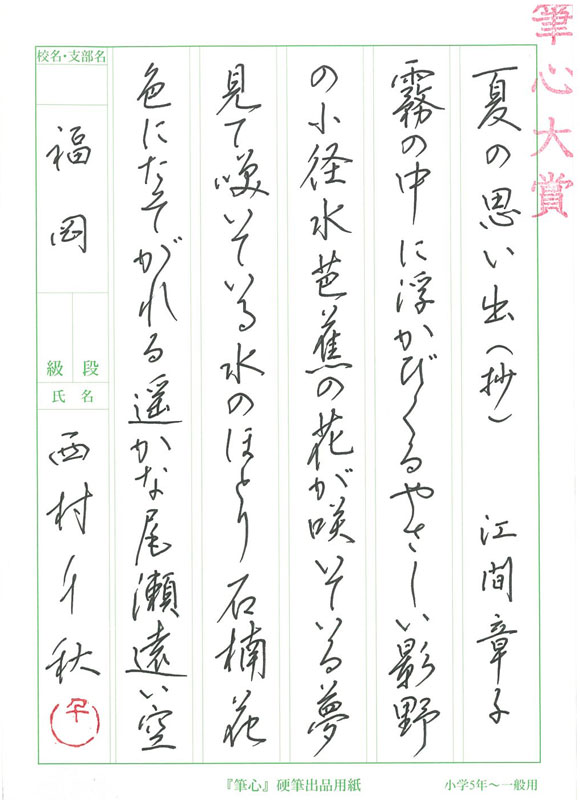 筆心大賞
夏の思い出(抄) 江間章子
霧の中に浮かびくるやさしい影野
の小径水芭蕉の花が咲いている夢
見て咲いている水のほとり石楠花
色にたそがれる遥かな尾瀬遠い空
校名・支部名
福岡
段
級
氏名
西村千秋
『筆心』硬筆出品用紙
小学5年〜一般用